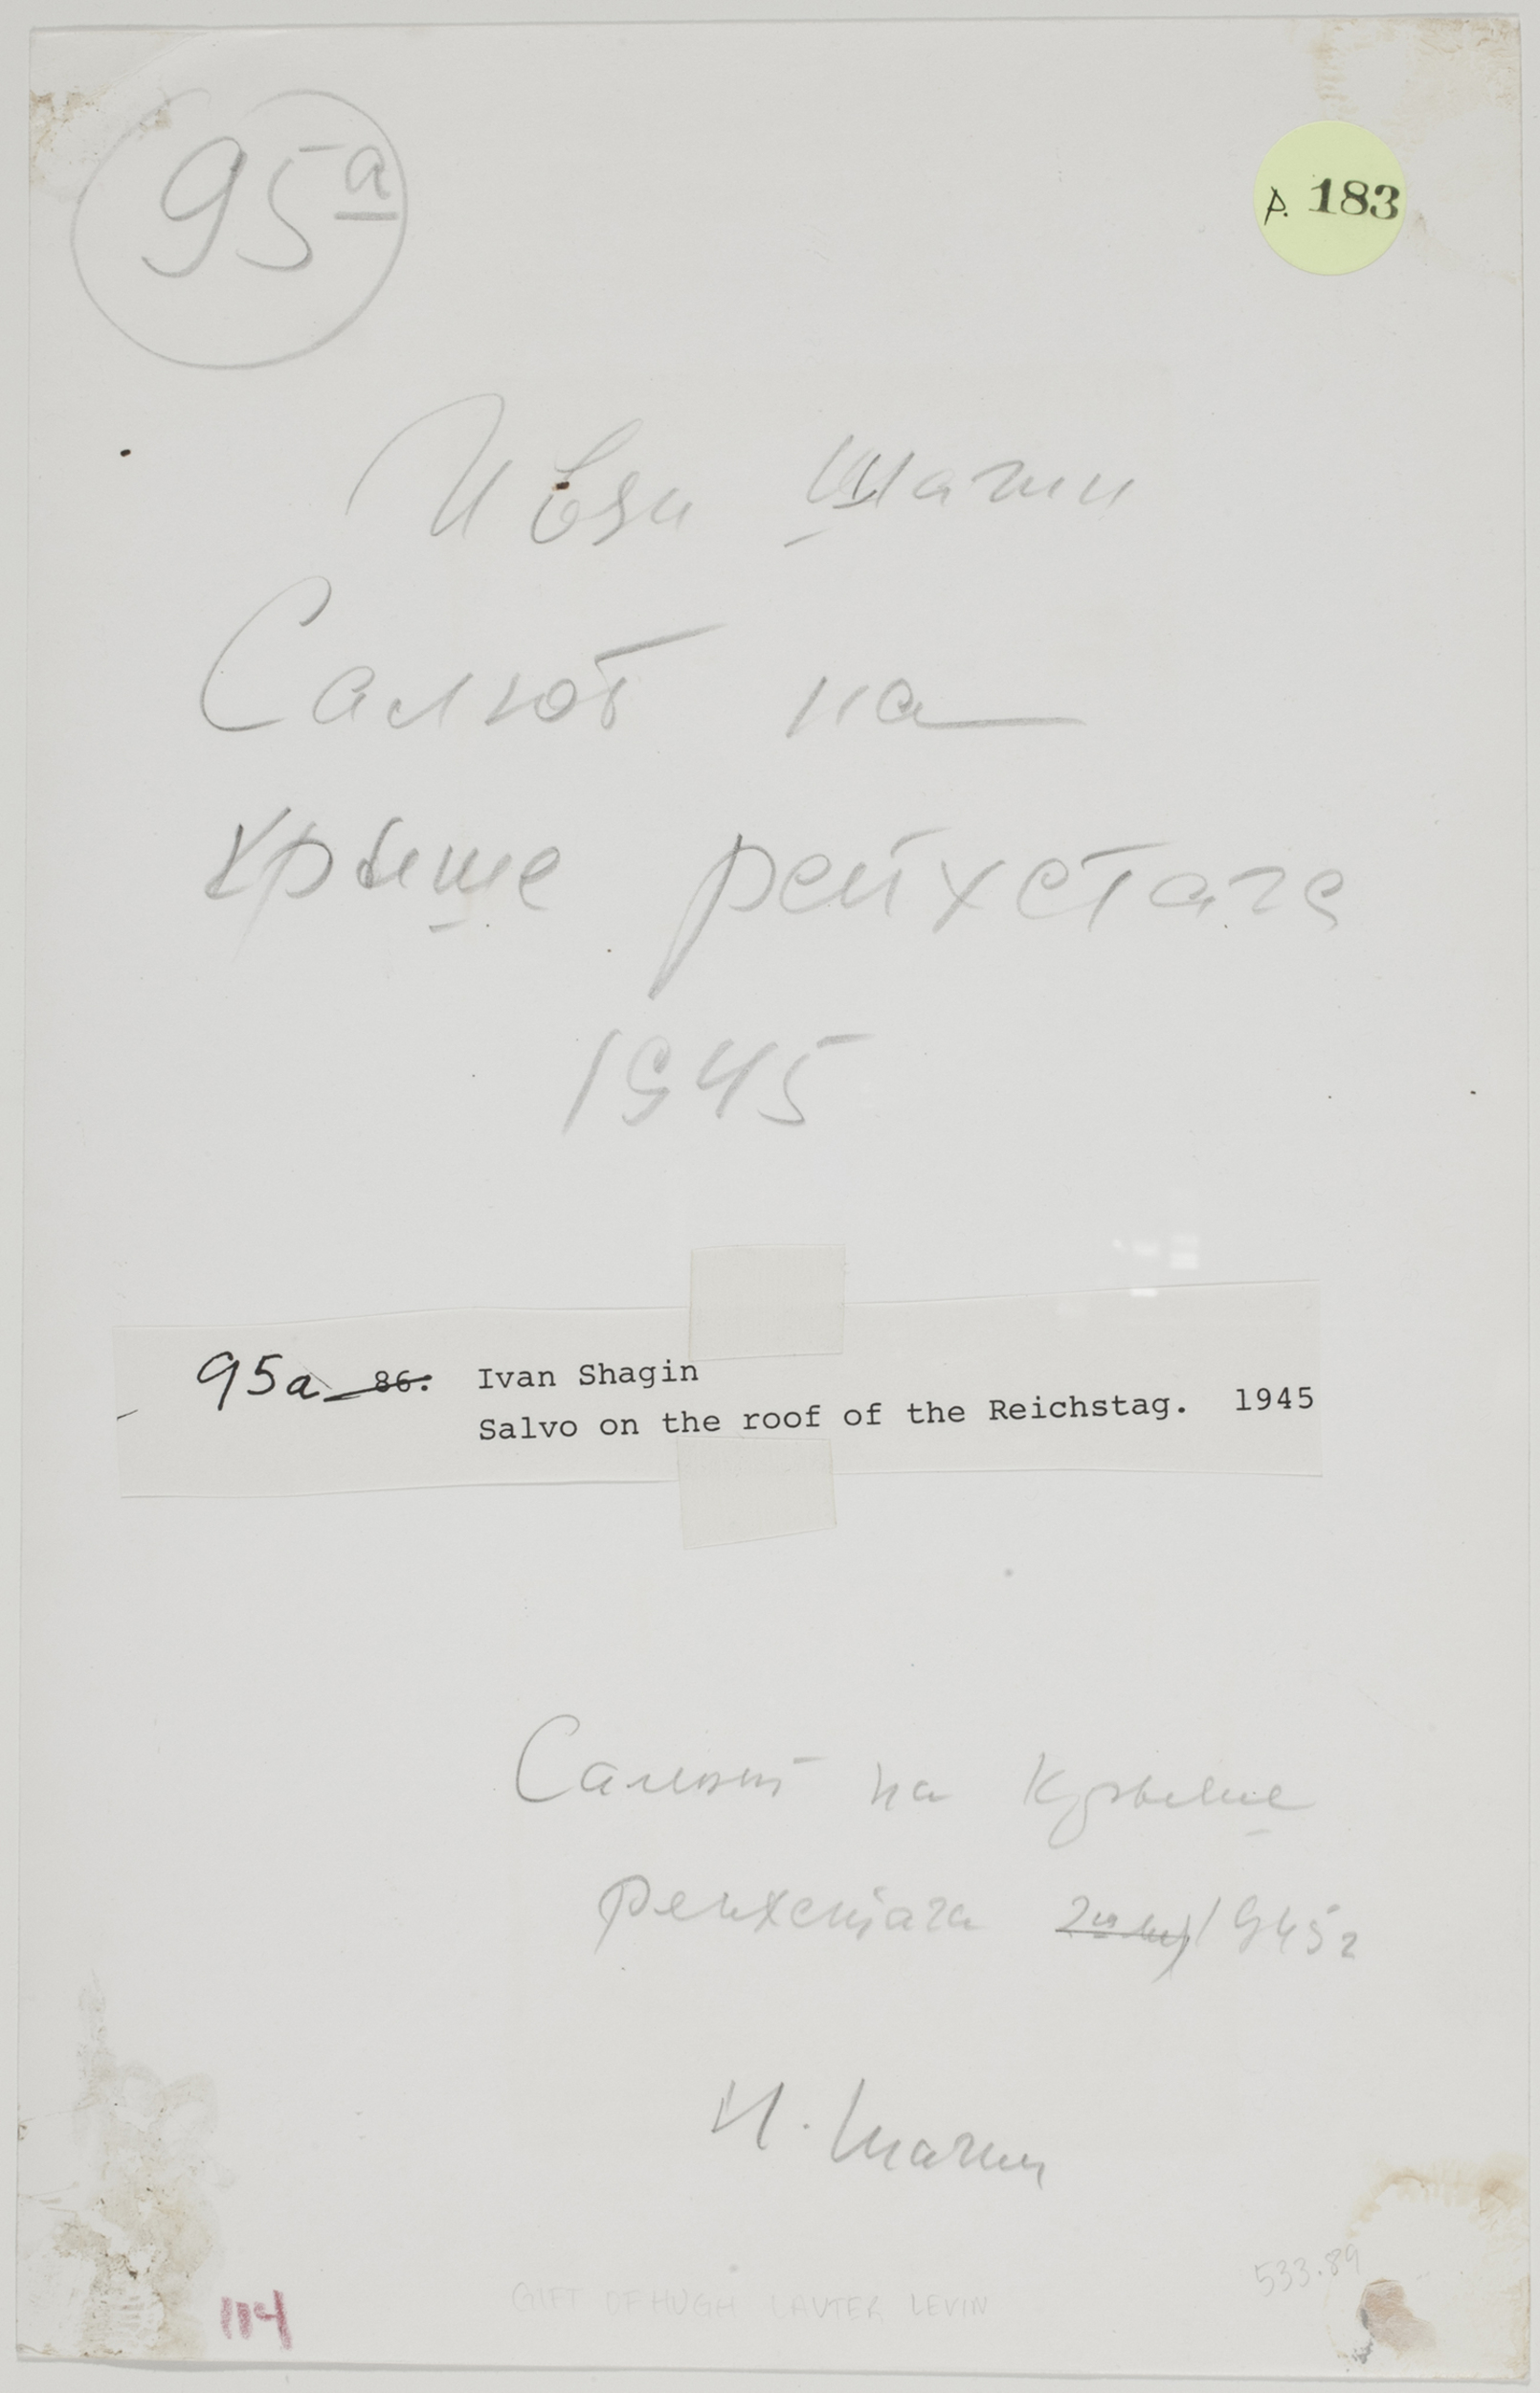 95a
p. 183
Иван Шагин
Салют на
крыше рейхстага
1945
95a 86. Ivan Shagin
Salvo on the roof of the Reichstag. 1945
Салют на крыше
рейхстага 1945г
И. Шагин
533.89
GIFT OF HUGH LAUTER LEVIN
114